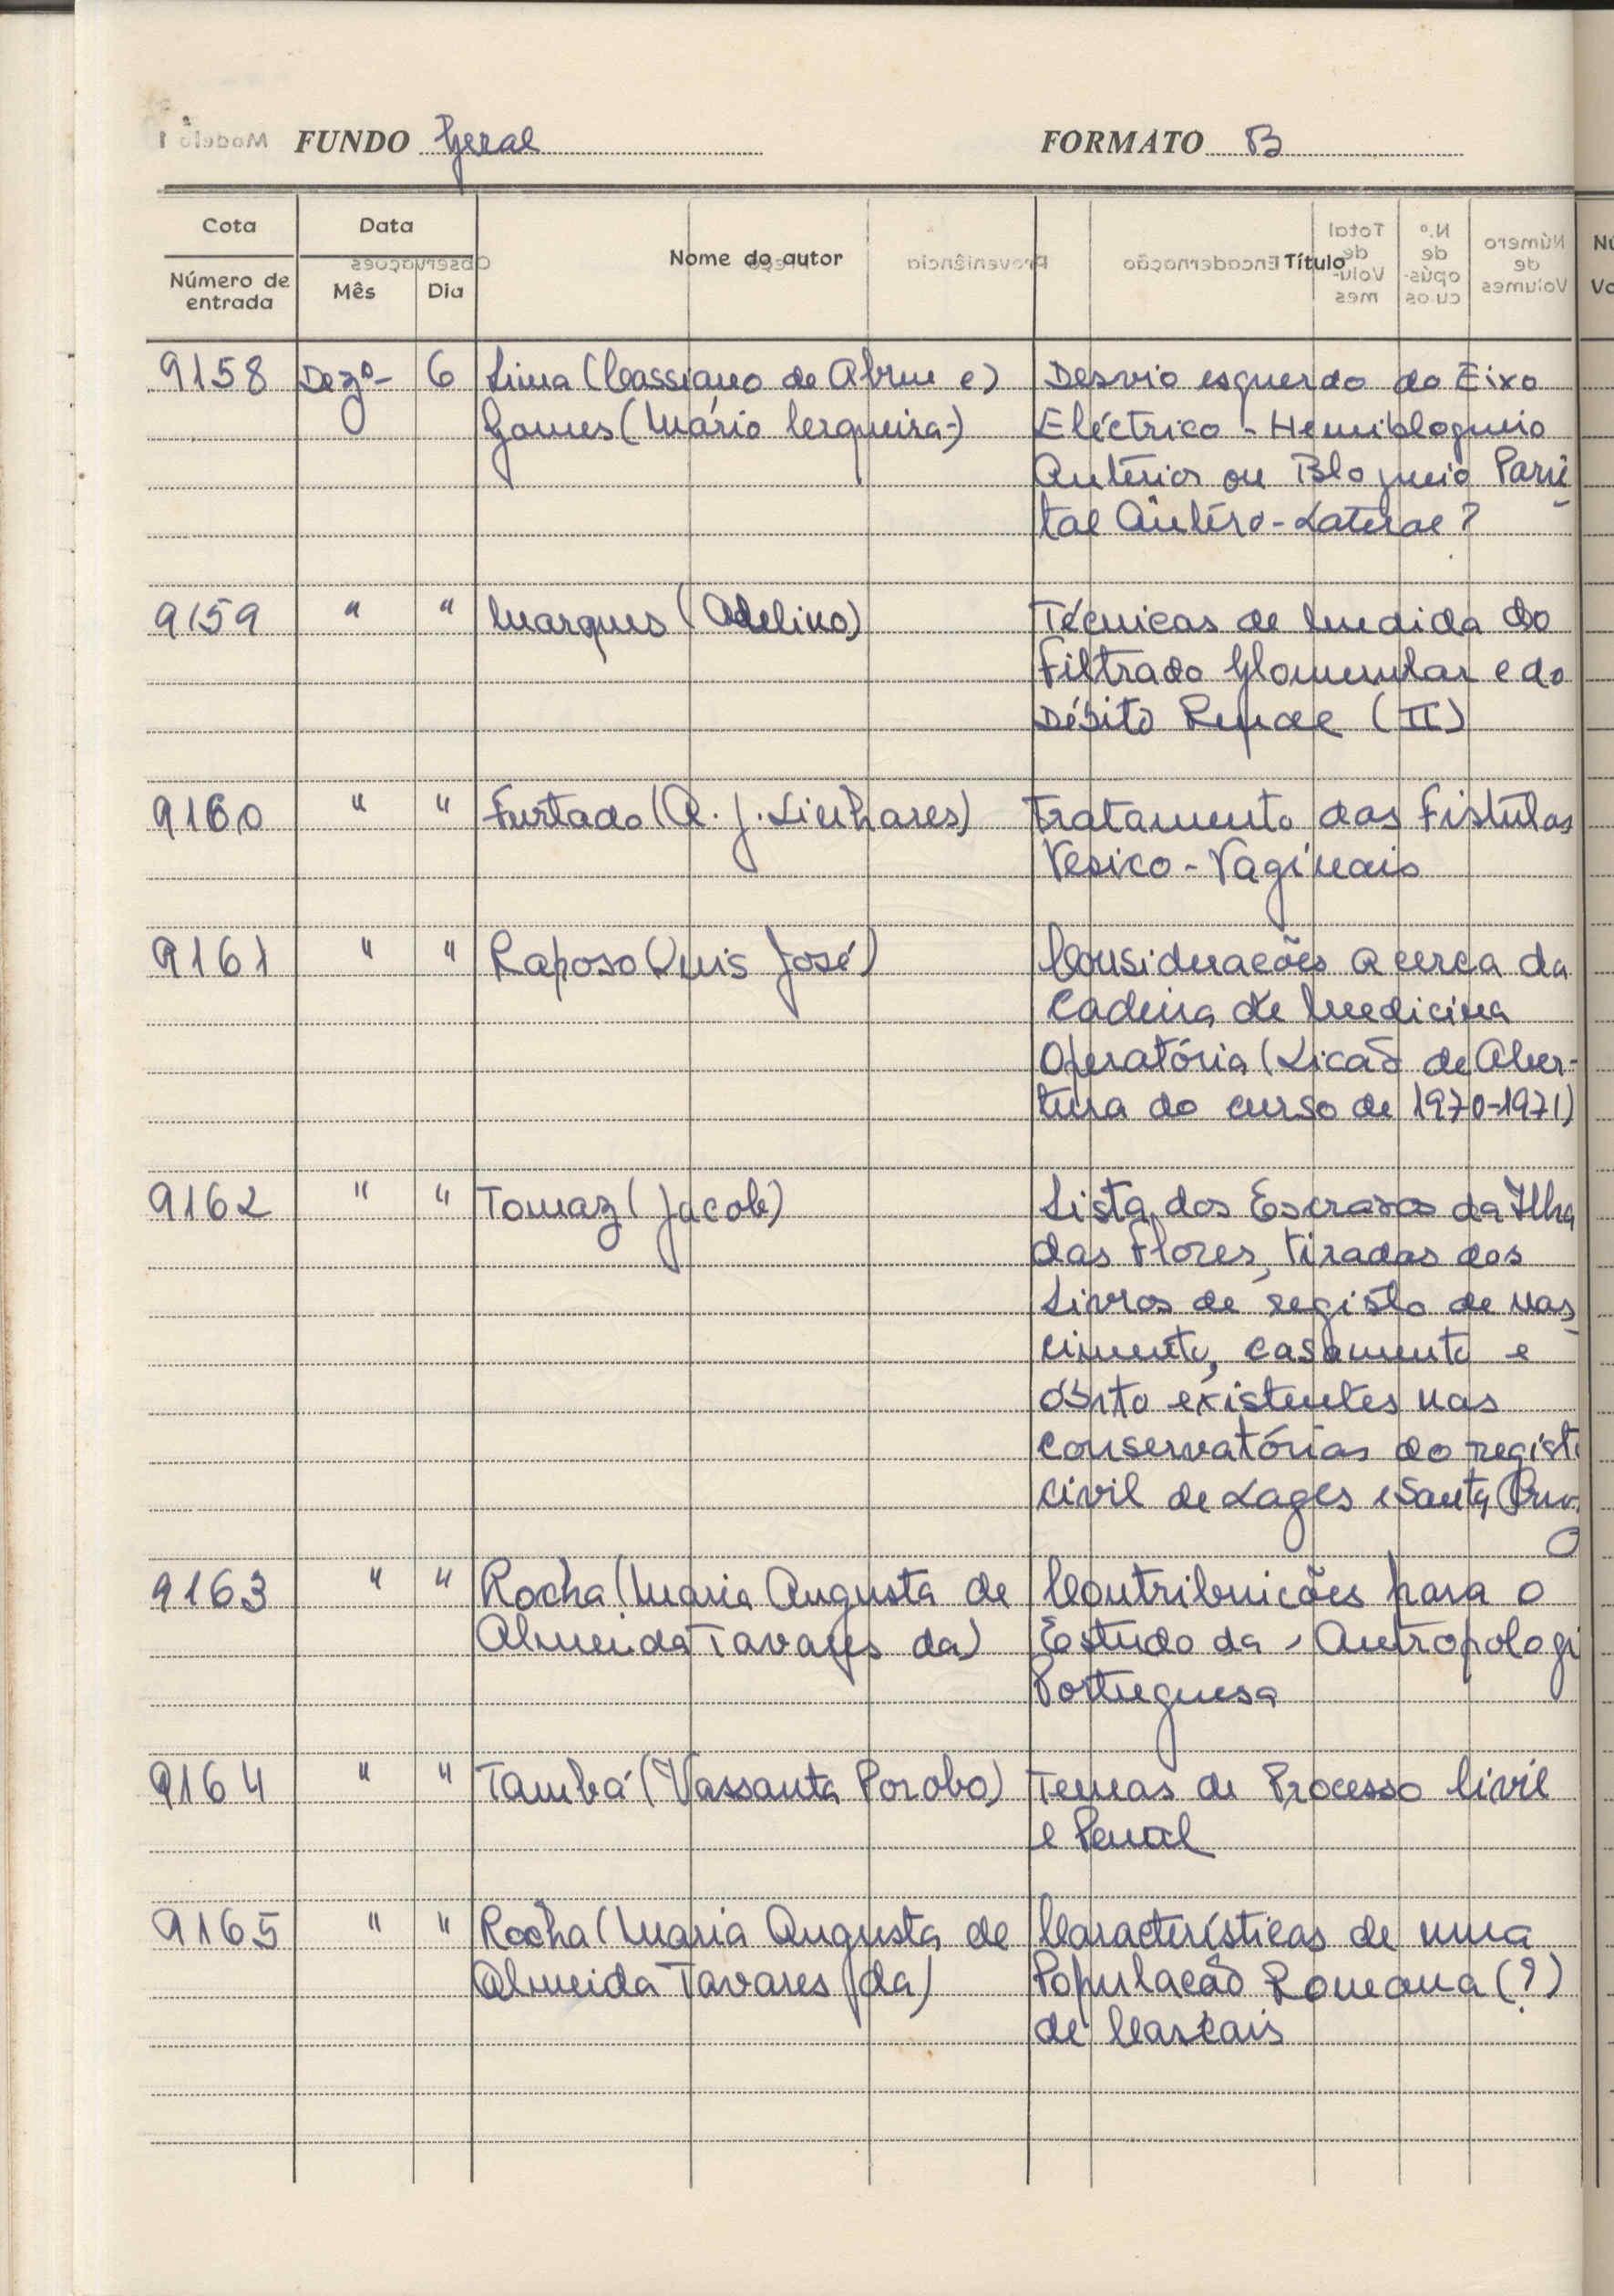 FUNDO Geral FORMATO B
Cota Data Nome do autor Título
Número de entrada Mês Dia
9158 Dezº- 6 Lima (Cassiano de Abreu e) Desvio esquerdo do Eixo
Gomes (Mário Cerqueira-) Eléctrico - Hemibloqueio
Antérior ou Bloqueio Parie
tal Antéro-Lateral?
9159 " " Marques (Adelino) Técnicas de Medida do
Filtrado Glomerular e do
Débito Renal (II)
9160 " " Furtado (A. J. Linhares) Tratamento das Fistulas
Vesico-Vaginais
9161 " " Raposo (Luis José) Consideracões acerca da
Cadeira de Medicina
Operatória (Licão de Aber-
tura do curso de 1970-1971)
9162 " " Tomaz (Jacob) Lista dos Escravos da Ilha
das Flores, tiradas dos
Livros de registo de nas
cimento, casamento e
óbito existentes nas
conservatórias do regist
civil de Lages e Santa Cruz
9163 " " Rocha (Maria Augusta de Contribuicões para o
Almeida Tavares da) Estudo da Antropologi
Portuguesa
9164 " " Tambá (Vassanta Porobo) Temas de Processo Civil
e Penal
9165 " " Rocha (Maria Augusta de Características de uma
Almeida Tavares da) Populacão Romana (?)
de Cascais